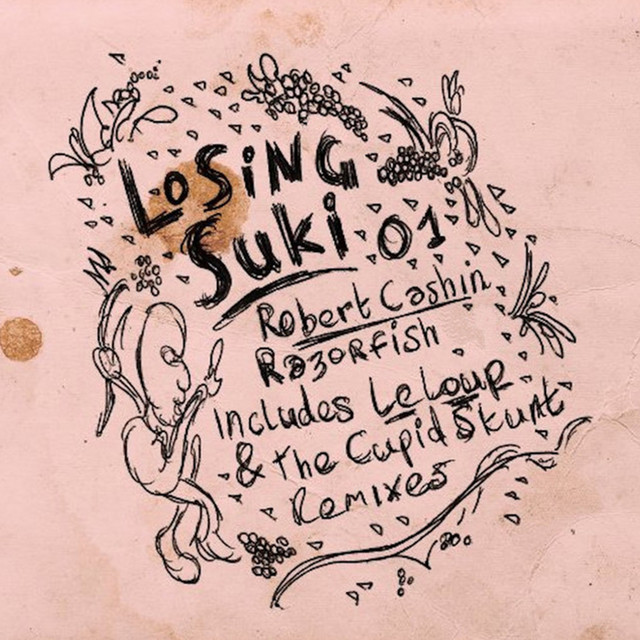 LoSiNG
Suki 01
Robert Cashin
Razorfish
Includes LeLoup
& The Cupid Skunk
Remixes